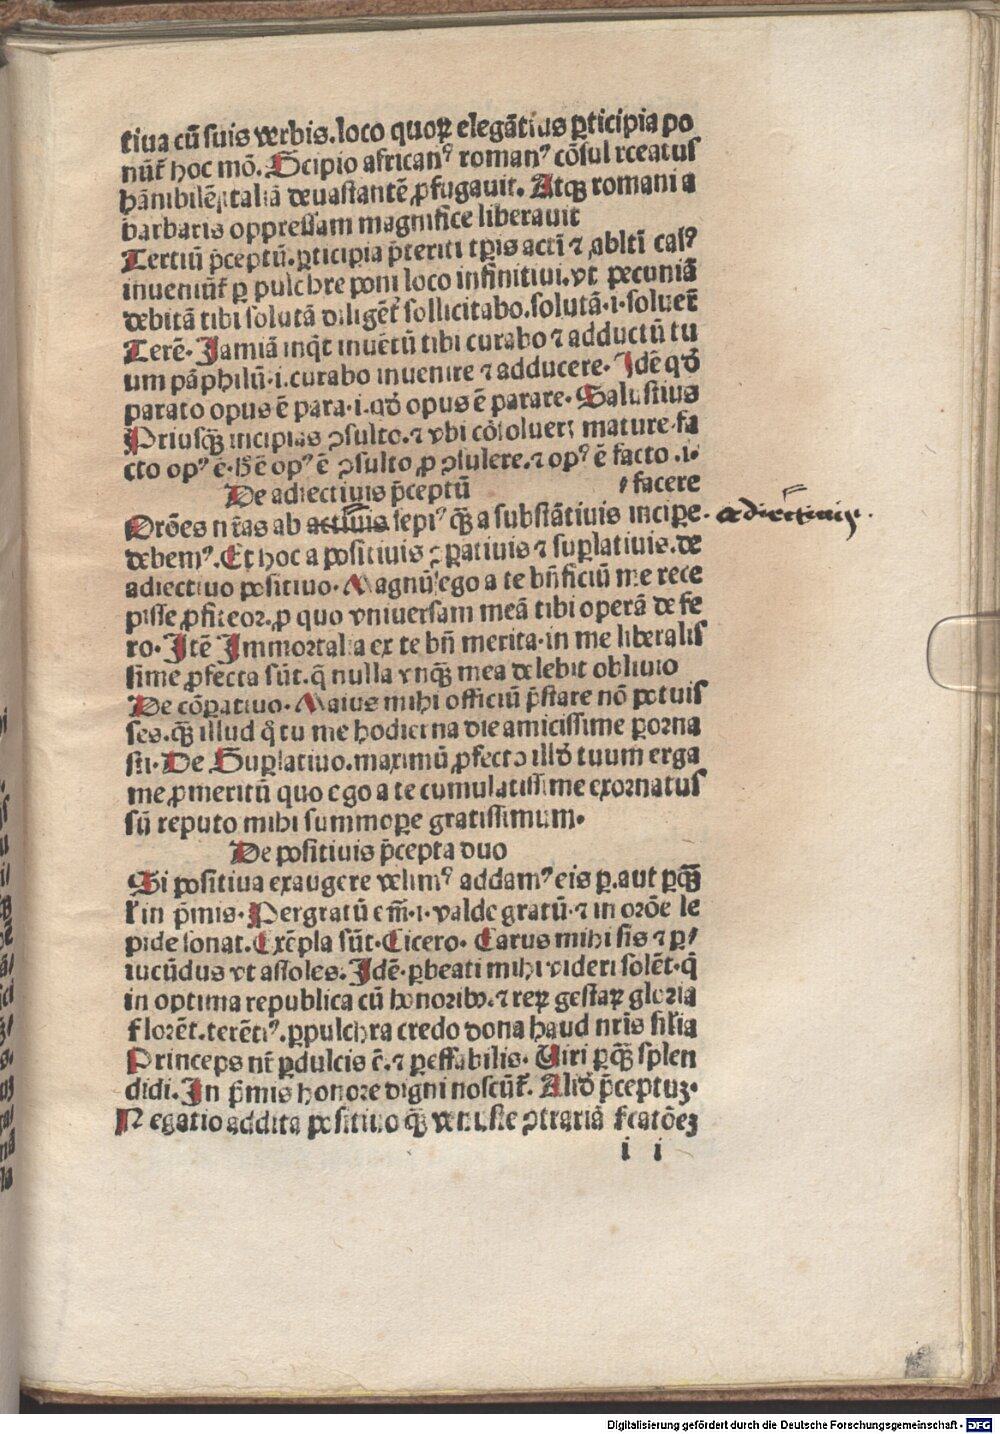 tiua cū suis verbis. loco quoꝝ elegātius ꝑticipia po
nūt̃ hoc mō. Scipio africanꝰ romanꝰ cōsul rceatus
hānibilē ptaliā deuastantē ꝓfugauit. Atqꝫ romani a
barbaris oppressam magnifice liberauit
Tertiū p̄ceptū. ꝑticipia p̄teriti tp̄is acti ⁊ ablti casꝰ
inueniūt̃ ꝑ pulchre poni loco infinitiui. vt pecuniā
debitā tibi solutā diligēt̃ sollicitabo. solutā ·i· soluet̄
Terē. Jamiā inq̄t inuētū tibi curabo ⁊ adductū tu
um pāphilū ·i. curabo inuenire ⁊ adducere. Idē qd̄
parato opus ē para ·i. qd̄ opus ē parare. Salustius
Priusqꝫ̄ incipias ꝯsulto. ⁊ vbi cōsoluer; mature fa
cto opꝰ ē. hē opꝰ ē ꝯsulto ꝓ ꝯsulere. ⁊ opꝰ ē facto .i.
De adiectiuis p̄ceptū facere
Orōes nr̄as ab actiuis sepiꝰ qꝫ̄ a substātiuis incipe. adiectiuis.
debemꝰ. Et hoc a positiuis ꝯꝑatiuis ⁊ suꝑlatiuis. de
adiectiuo positiuo. Magnū ego a te bn̄ficiū me rece
pisse ꝓfiteor. ꝓ quo vniuersam meā tibi operā de fe
ro. Itē Immortalia ex te bn̄ merita in me liberalis
sime ꝓfecta sūt. q̄ nulla vnqꝫ̄ mea delebit obliuio
De cōꝑatiuo. Maius mihi officiū p̄stare nō potuis
ses. qꝫ̄ illud q̄ tu me hodierna die amicissime ꝑorna
sti. De Suꝑlatiuo. maximū ꝓfecto illd̄ tuum erga
me ꝓmeritū quo ego a te cumulatissime exornatus
sū reputo mihi summoꝑe gratissimum.
De positiuis p̄cepta duo
Si positiua exaugere velimꝰ addamꝰ eis ꝑ. aut ꝑqꝫ̄
ł in p̄mis. Pergratū em̄ ·i· valde gratū. ⁊ in orōe le
pide sonat. Exēpla sūt. Cicero. Carus mihi sis ⁊ ꝑ/
iucūdus vt assoles. Idē. ꝑbeati mihi videri solēt. q̄
in optima republica cū honoribꝫ. ⁊ reꝝ gestaꝝ gloria
florēt. terētiꝰ. ꝑpulchra credo dona haud nr̄is silia
Princeps nr̄ ꝑdulcis ē. ⁊ ꝑeffabilis. Viri ꝑqꝫ̄ splen
didi. In p̄mis honore digni noscūt̃. Aliud p̄ceptuꝫ.
Negatio addita positiuo qꝫ̄ venuste ꝯtrariā
i i
Digitalisierung gefördert durch die Deutsche Forschungsgemeinschaft - DFG